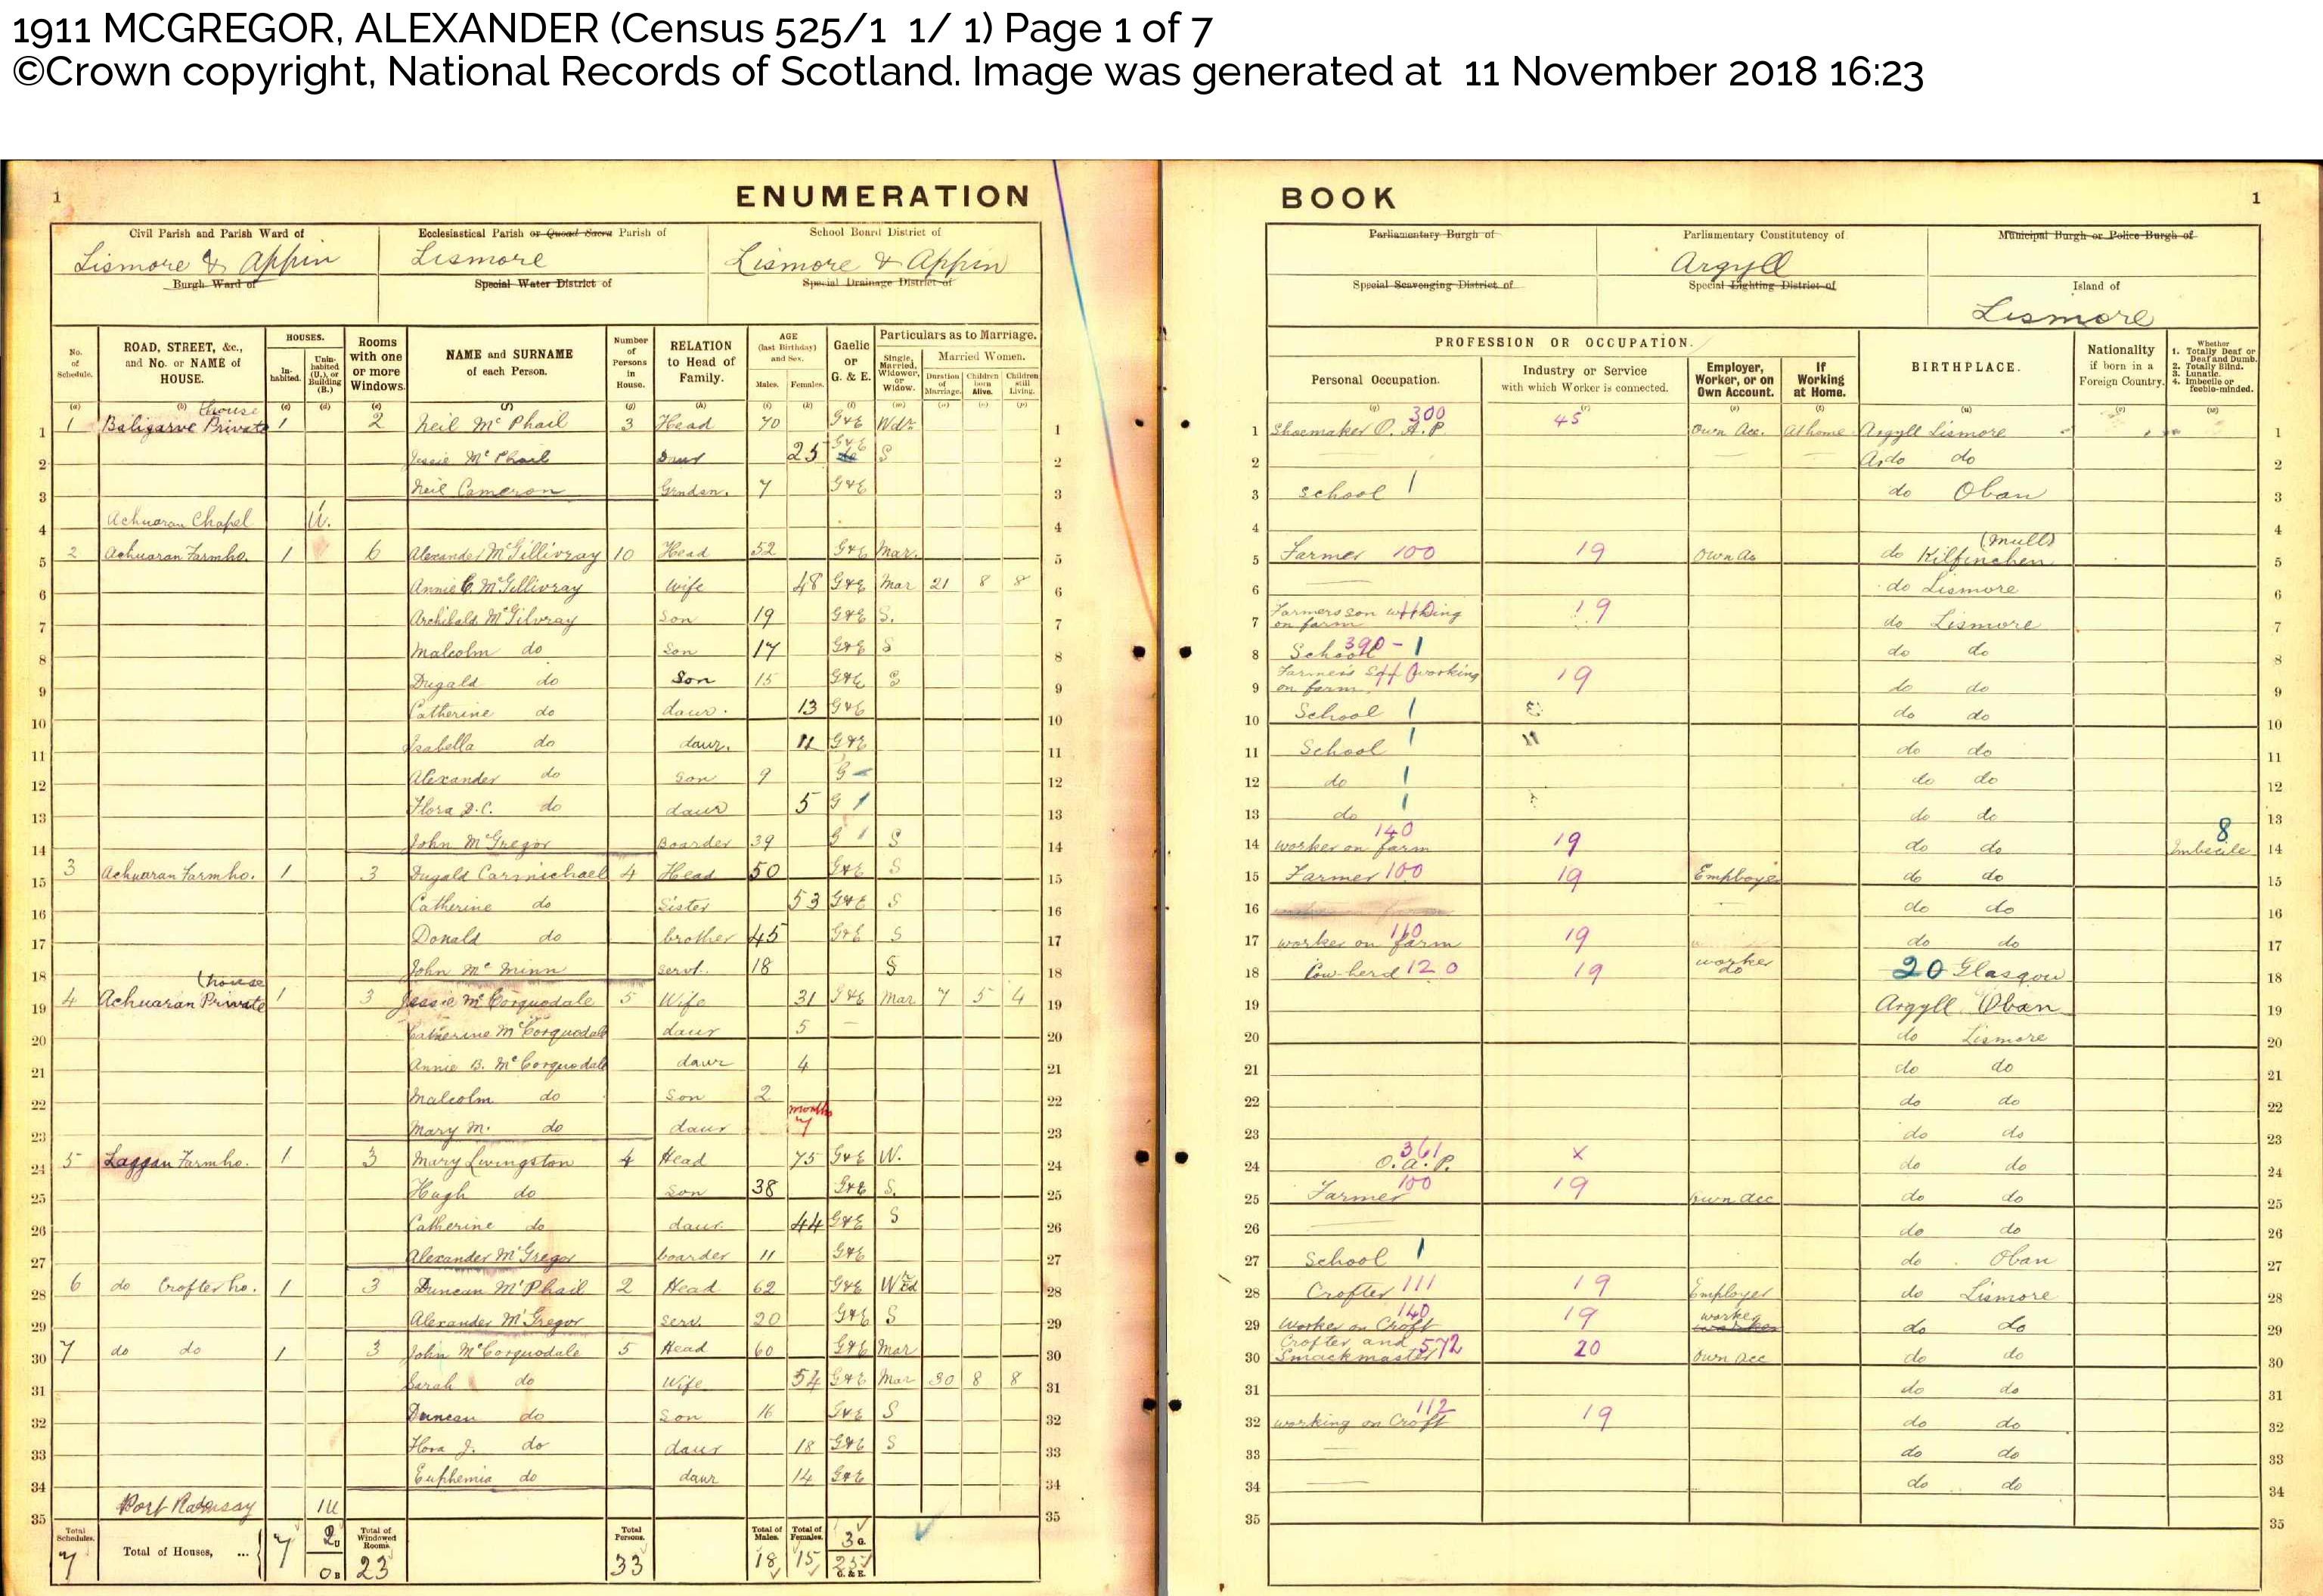 1911 MCGREGOR, ALEXANDER (Census 525/1 1/ 1) Page 1 of 7
©Crown copyright, National Records of Scotland. Image was generated at 11 November 2018 16:23
1 ENUMERATION BOOK 1
Civil Parish and Parish Ward of Ecclesiastical Parish or Quoad Sacra Parish of School Board District of Parliamentary Burgh of Parliamentary Constitutency of Municipal Burgh or Police Burgh of
Lismore & Appin Lismore Lismore & Appin Argyll
Burgh Ward of Special Water District of Special Drainage District of Special Scavenging District of Special Lighting District of Island of
Lismore
No. of Schedule. ROAD, STREET, &c., and No. or NAME of HOUSE. HOUSES. Inhabited. Uninhabited (U.), or Building (B.) Rooms with one or more Windows. NAME and SURNAME of each Person. Number of Persons in House. RELATION to Head of Family. AGE (last Birthday) and Sex. Males. Females. Gaelic or G. & E. Particulars as to Marriage. Single, Married, Widower, or Widow. Married Women. Duration of Marriage. Children born Alive. Children still Living. PROFESSION OR OCCUPATION. Personal Occupation. Industry or Service with which Worker is connected. Employer, Worker, or on Own Account. If Working at Home. BIRTHPLACE. Nationality if born in a Foreign Country. Whether 1. Totally Deaf or Deaf and Dumb. 2. Totally Blind. 3. Lunatic. 4. Imbecile or feeble-minded.
1 1 Baligarve Private house 1 2 Neil McPhail 3 Head 70 G&E Wdr. 1 Shoemaker O.A.P 300 45 Own Acc. At home Argyll Lismore 1
2 Jessie McPhail Daur 25 G&E S 2 do do 2
3 Neil Cameron Grndsn. 7 G&E 3 School 1 do Oban 3
4 Achuaran Chapel U. 4
5 2 Achuaran Farmho. 1 6 Alexander McGillivray 10 Head 52 G&E Mar. 5 Farmer 100 19 Own Ac do Kilfinchen (Mull) 5
6 Annie C. McGillivray Wife 48 G&E Mar 21 8 8 6 do Lismore 6
7 Archibald McGilvray Son 19 G&E S. 7 Farmers son working on farm 110 19 do Lismore 7
8 Malcolm do Son 17 G&E S 8 School 390 - 1 do do 8
9 Dugald do Son 15 G&E S 9 Farmer's son working on farm 19 do do 9
10 Catherine do daur. 13 G&E 10 School 1 do do 10
11 Isabella do daur. 11 G&E 11 School 1 do do 11
12 Alexander do Son 9 G 12 do 1 do do 12
13 Flora D.C. do daur 5 G 1 13 do 1 do do 13
14 John McGregor Boarder 39 G 1 S 14 worker on farm 140 19 do do 8 Imbecile 14
15 3 Achuaran Farmho. 1 3 Dugald Carmichael 4 Head 50 G&E S 15 Farmer 100 19 Employer do do 15
16 Catherine do Sister 53 G&E S 16 do do 16
17 Donald do brother 45 G&E S 17 worker on farm 110 19 worker do do 17
18 John McMinn servt. 18 S 18 Cow-herd 120 19 do 20 Glasgow 18
19 4 Achuaran Private house 1 3 Jessie McCorquodale 5 Wife 31 G&E Mar 7 5 4 19 Argyll Oban 19
20 Catherine McCorquodale daur 5 20 do Lismore 20
21 Annie B. McCorquodale daur 4 21 do do 21
22 Malcolm do Son 2 22 do do 22
23 Mary M. do daur 7 months 23 do do 23
24 5 Laggan Farmho. 1 3 Mary Livingston 4 Head 75 G&E W. 24 O.A.P. 361 X do do 24
25 Hugh do Son 38 G&E S. 25 Farmer 100 19 Own acc do do 25
26 Catherine do daur. 44 G&E S 26 do do 26
27 Alexander McGregor boarder 11 G&E 27 School 1 do Oban 27
28 6 do Crofter ho. 1 3 Duncan McPhail 2 Head 62 G&E 28 Crofter 111 19 Employer do Lismore 28
29 Alexander McGregor serv. 20 G&E S 29 Worker on Croft 140 19 worker do do 29
30 7 do do 1 3 John McCorquodale 5 Head 60 G&E Mar 30 Crofter and Smackmaster 572 20 Own acc do do 30
31 Sarah do Wife 54 G&E Mar 30 8 8 31 do do 31
32 Duncan do Son 16 G&E S 32 working on Croft 112 19 do do 32
33 Flora J. do daur 18 G&E S 33 do do 33
34 Euphemia do daur 14 G&E 34 do do 34
35 Port Ramsay 1U 35
Total Schedules. 7 Total of Houses, ... 7 2 U 0 B Total of Windowed Rooms 23 Total Persons. 33 Total of Males. 18 Total of Females. 15 3 G. 25 G. & E.